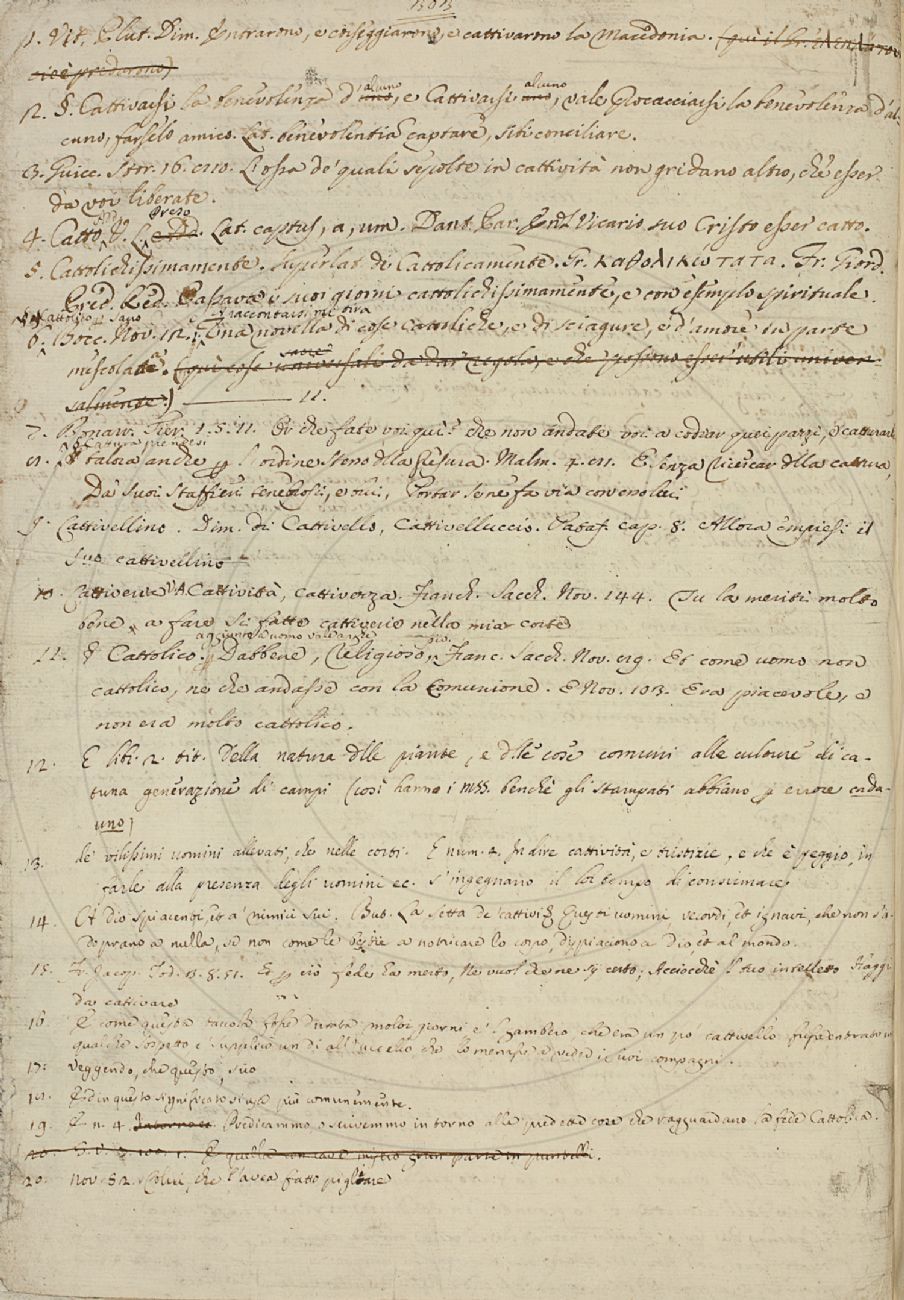 303
1. Vit. Plut. Dim. Entrarono, e corseggiarono, e cattivarono la Macedonia. (quì il Gr.
cioè predarono)
2. §. Cattivarsi la benevolenza d'alcuno, e Cattivarsi alcuno, vale Procacciarsi la benevolenza d'al-
cuno, farselo amico. Lat. benevolentiam captare, sibi conciliare.
3. Guicc. Stor. 16. L'ossa de' quali sepolte in cattività non gridano altro, che esser
da voi liberate.
4. Catto. Preso. Lat. captus, a, um. Dant. Vicario suo Cristo esser catto.
5. Cattolichissimamente. Superlat. di Cattolicamente. Gr. καθολικωτατα. Fr. Giord.
Pred. Red. Passava i suoi giorni cattolichissimamente, e con esemplo spirituale.
raccontarsi mi tira
6. Bocc. Nov. 12. Una novella di cose cattoliche, e di sciagure, e d'amore in parte
mescolata. (quì cose sacre universali da dar regole, e che possono esser utili univer-
salmente.) 11.
7. Buonarr. Fier. 1. 5. 11. Or che fate voi quì? che non andate voi a codiar quei pazzi, e catturarli
8. talora anche l'ordine stesso della presura. Malm. E senza ricercar della cattura,
Da' suoi staffieri tenebrosi, e bui, Portar se ne fa via con esso lui
9. Cattivellino. Dim. di Cattivello, Cattivelluccio. Pataff. cap. 8. Allora empiessi il
suo cattivellino
10. Cattiveria. V. A. Cattività, cattivezza. Franch. Sacch. Nov. 144. Tu la meriti molto
bene a fare sì fatte cattiverie nella mia corte
aggiunto a uomo vale anche
11. § Cattolico. Dabbene, Religioso. Franc. Sacch. Nov. Et come uomo non
cattolico, ne che andasse con la Comunione. E Nov. 103. Era piacevole, e
non era molto cattolico.
12. E lib. 2. tit. Della natura delle piante, e delle cose comuni alle culture di ca-
tuna generazione di campi (così hanno i mss. benchè gli stampati abbiano p errore cada-
uno)
13. de' vilissimi uomini allevati, che nelle corti. E num. 4. In dire cattività, e tristizie, e che è peggio, in
farle alla presenza degli uomini ec. s'ingegnano il lor tempo di consumare
14. A Dio spiacenti, et a' nimici sui. But. La setta de' cattivi Questi uomini vecordi, et ignavi, che non s'a-
doprano a nulla, se non come le bestie a notricare lo corpo, dispiaciono a Dio, et al mondo.
15. Fr. Jacop. Tod. Ed p ciò fede ha merto, Ne vuol che ne sij certo; Acciocchè l tuo intelletto Haggi
da cattivare
16. E come questa taccola durata molti giorni e'l Gambero, che era un po cattivello fusse entrato in
qualche sospetto e' supplicò un dì all'uccello che lo menasse a veder i suoi compagni.
17. Veggendo, che questo suo
18. Ed in questo significato si usa più comunemente.
19. E n. 4. Intorno a. Predicammo o scrivemmo intorno alle predette cose che ragguardano la fede Cattolica.
20. Nov. 52. Colui, che l'avea fatto pigliare